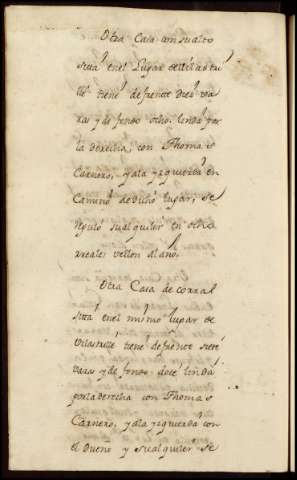 Otra Casa con su alto
sita en el Lugar de Vilastu
lle tiene de frente diez va
ras y de fondo ocho. linda por
la derecha, con Thomas
Carnero, y a la yzquierda en
Camino de dicho lugar, se
reguló su alquiler en ocho
rreales vellon al año.
Otra Casa de corral
sita en el mismo lugar de
Vilastulle tiene de frente siete
varas y de fondo doce linda
por la derecha con Thomas
Carnero, y a la yzquierda con
el dueño y su alquiler se